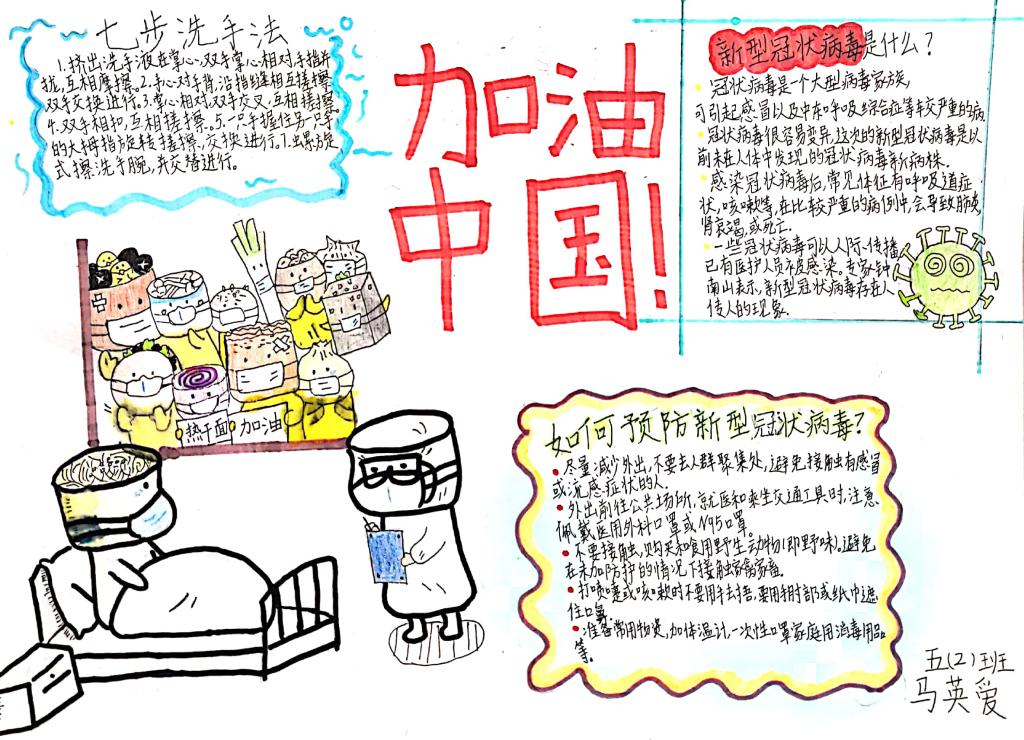 七步洗手法
1.挤出洗手液在掌心,双手掌心相对手指并
拢,互相摩擦。2.手心对手背,沿指缝相互搓擦,
双手交换进行。3.掌心相对,双手交叉,互相搓擦
4.双手相扣,互相搓擦。5.一只手握住另一只手
的大拇指旋转搓擦,交换进行。7.螺旋
式擦洗手腕,并交替进行。
加油
中国!
新型冠状病毒是什么?
冠状病毒是一个大型病毒家族,
可引起感冒以及中东呼吸综合症等较严重的病
冠状病毒很容易变异,这次的新型冠状病毒是以
前未在人体中发现的冠状病毒新病株.
感染冠状病毒后,常见体征有呼吸道症
状,咳嗽等,在比较严重的病例中,会导致肺炎
肾衰竭,或死亡.
一些冠状病毒可以人际传播
已有医护人员被感染。专家钟
南山表示,新型冠状病毒存在人
传人的现象.
热干面
加油
如何预防新型冠状病毒?
尽量减少外出,不要去人群聚集处,避免接触有感冒
或流感症状的人.
外出前往公共场所,就医和乘坐交通工具时,注意
佩戴医用外科口罩或N95口罩。
不要接触,购买和食用野生动物(即野味)。避免
在未加防护的情况下接触家禽家畜.
打喷嚏或咳嗽时不要用手捂,要用肘部或纸巾遮
住口鼻.
准备常用物资,如体温计,一次性口罩家庭用消毒用品
等。
五(2)班
马英爱